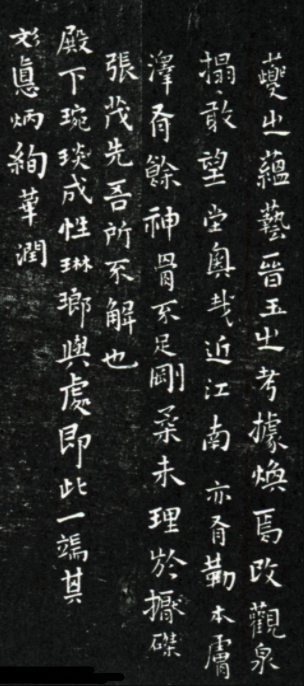 之蘊藝晉玉之考據煥焉改觀泉
搨敢望堂奧哉近江南亦有勒本膚
澤有餘神骨不足剛柔未理於磔
張茂先吾所不解也
殿下琬琰成性琳瑯與處即此一端其
悳炳絢華潤